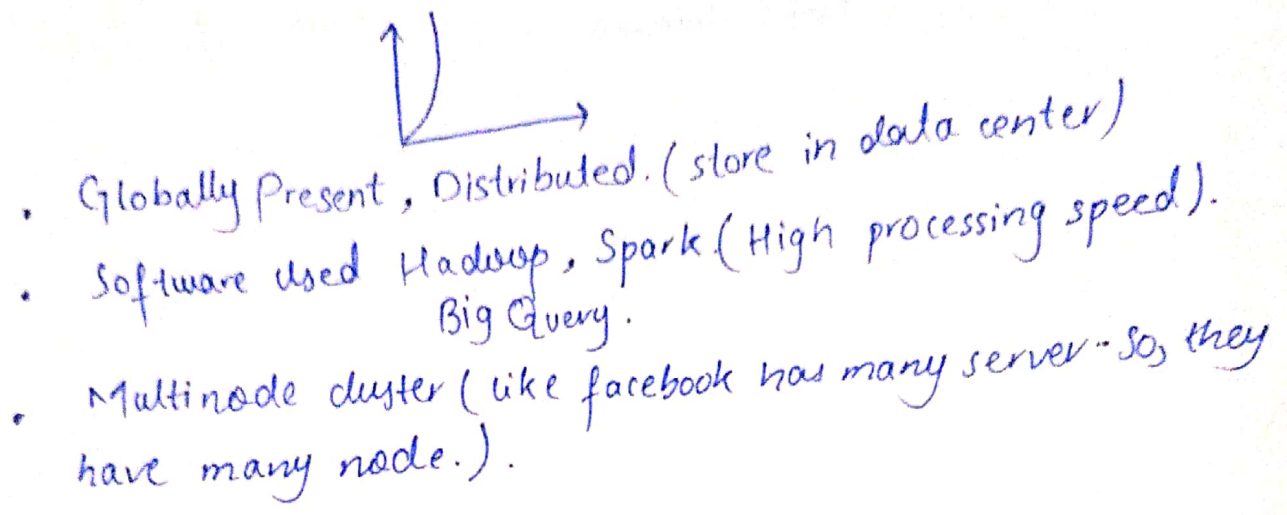 . Globally Present, Distributed. (store in data center)
. Software Used Hadoop, Spark (High processing speed).
Big Query.
. Multinode cluster (like facebook has many server. So, they
have many node.).